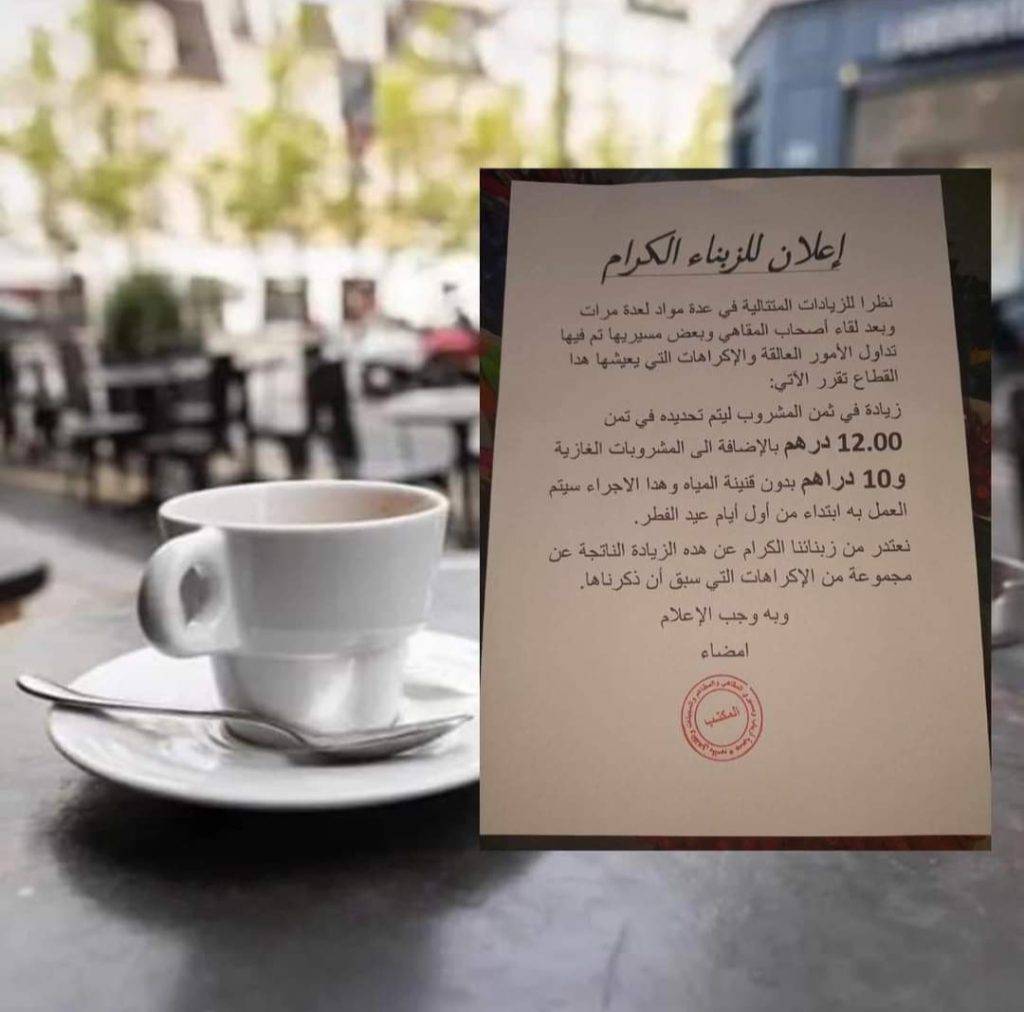 إعلان للزبناء الكرام
نظرا للزيادات المتتالية في عدة مواد لعدة مرات
وبعد لقاء أصحاب المقاهي وبعض مسيريها تم فيها
تداول الأمور العالقة والإكراهات التي يعيشها هدا
القطاع تقرر الآتي:
زيادة في ثمن المشروب ليتم تحديده في تمن
12.00 درهم بالإضافة الى المشروبات الغازية
و10 دراهم بدون قنينة المياه وهدا الاجراء سيتم
العمل به ابتداء من أول أيام عيد الفطر.
نعتدر من زبنائنا الكرام عن هده الزيادة الناتجة عن
مجموعة من الإكراهات التي سبق أن ذكرناها.
وبه وجب الإعلام
امضاء
المكتب